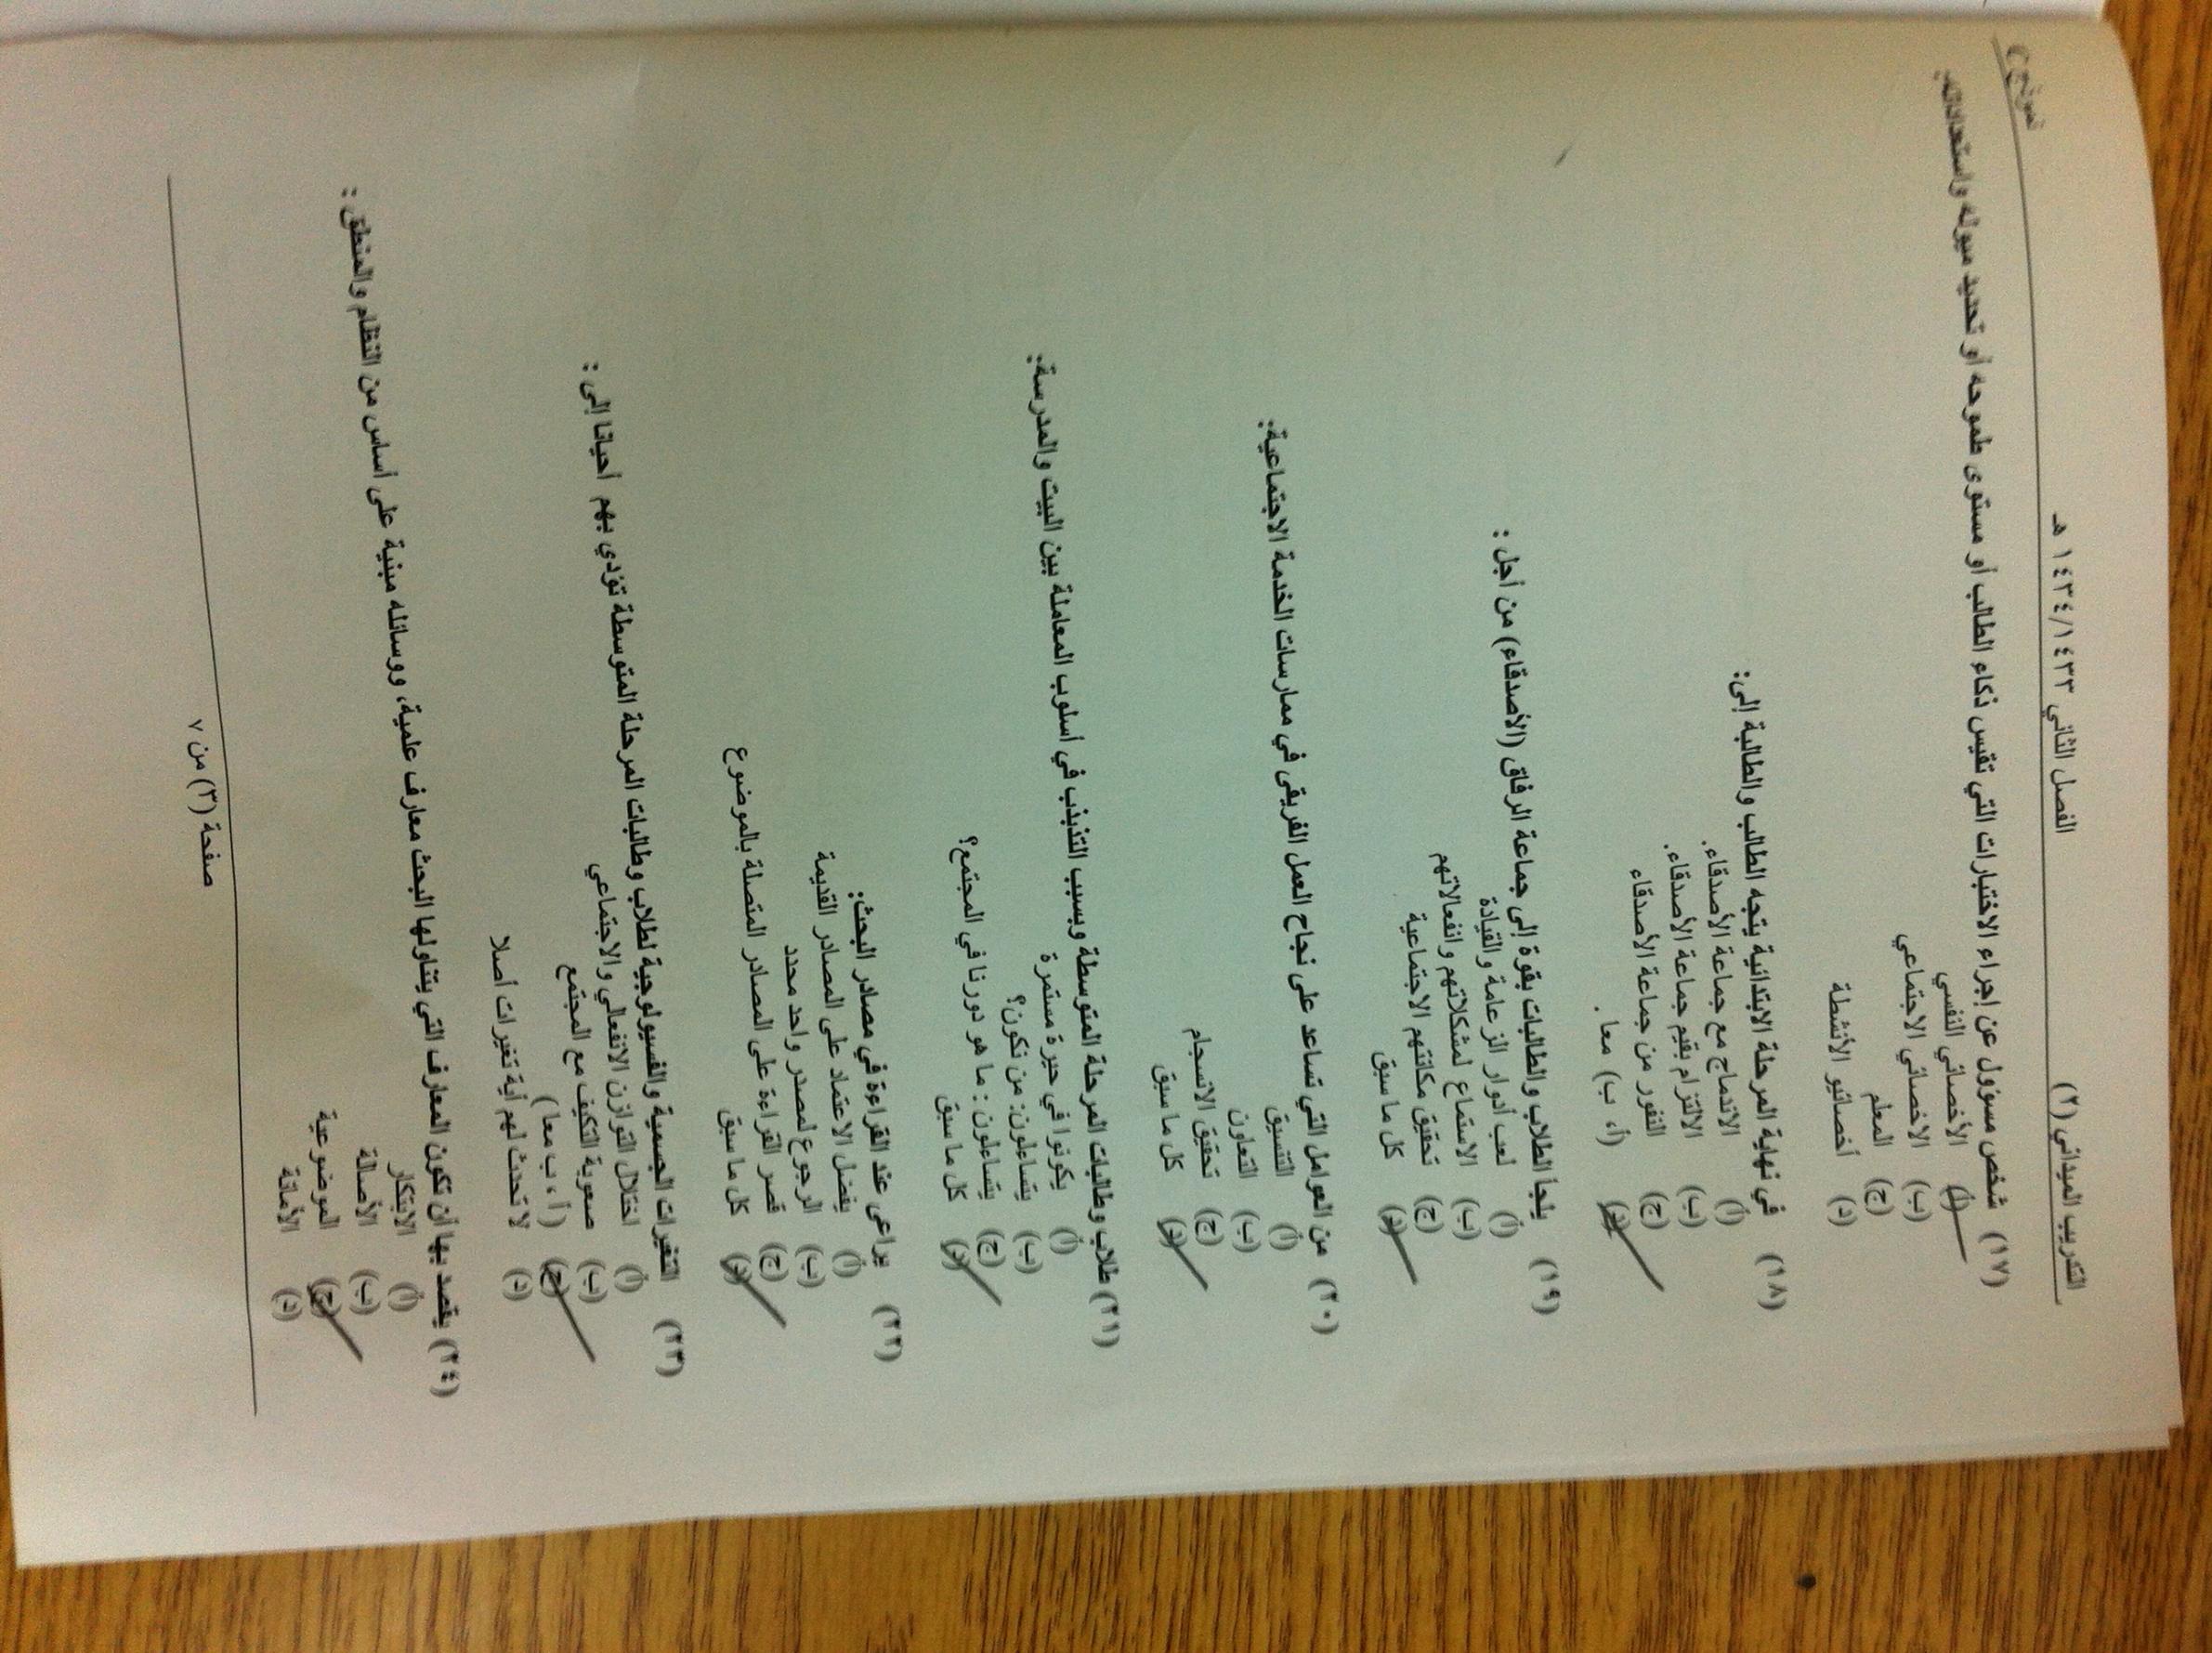 التدريب الميداني (٢) الفصل الثاني ١٤٣٤/١٤٣٣ هـ
(١٧) شخص مسؤول عن إجراء الاختبارات التي تقيس ذكاء الطالب أو مستوى طموحه أو تحديد ميوله واستعداداته.
(أ) الأخصائي النفسي
(ب) الاخصائي الاجتماعي
(ج) المعلم
(د) أخصائيو الأنشطة
(١٨) في نهاية المرحلة الابتدائية يتجه الطالب والطالبة إلى:
(أ) الاندماج مع جماعة الأصدقاء.
(ب) الالتزام بقيم جماعة الأصدقاء.
(ج) النفور من جماعة الأصدقاء
(د) (أ، ب) معا.
(١٩) يلجأ الطلاب والطالبات بقوة إلى جماعة الرفاق (الأصدقاء) من أجل :
(أ) لعب أدوار الزعامة والقيادة
(ب) الاستماع لمشكلاتهم وانفعالاتهم
(ج) تحقيق مكانتهم الاجتماعية
(د) كل ما سبق
(٢٠) من العوامل التي تساعد على نجاح العمل الفريقي في ممارسات الخدمة الاجتماعية:
(أ) التنسيق
(ب) التعاون
(ج) تحقيق الانسجام
(د) كل ما سبق
(٢١) طلاب وطالبات المرحلة المتوسطة وبسبب التذبذب في أسلوب المعاملة بين البيت والمدرسة:
(أ) يكونوا في حيرة مستمرة
(ب) يتساءلون: من نكون؟
(ج) يتساءلون : ما هو دورنا في المجتمع؟
(د) كل ما سبق
(٢٢) يراعى عند القراءة في مصادر البحث:
(أ) يفضل الاعتماد على المصادر القديمة
(ب) الرجوع لمصدر واحد محدد
(ج) قصر القراءة على المصادر المتصلة بالموضوع
(د) كل ما سبق
(٢٣) التغيرات الجسمية والفسيولوجية لطلاب وطالبات المرحلة المتوسطة تؤدي بهم أحيانا إلى :
(أ) اختلال التوازن الانفعالي والاجتماعي
(ب) صعوبة التكيف مع المجتمع
(ج) (أ ، ب معا)
(د) لا تحدث لهم أية تغيرات أصلا
(٢٤) يقصد بها أن تكون المعارف التي يتناولها البحث معارف علمية، ووسائله مبنية على أساس من النظام والمنطق :
(أ) الابتكار
(ب) الأصالة
(ج) الموضوعية
(د) الأمانة
صفحة (٣) من ٧